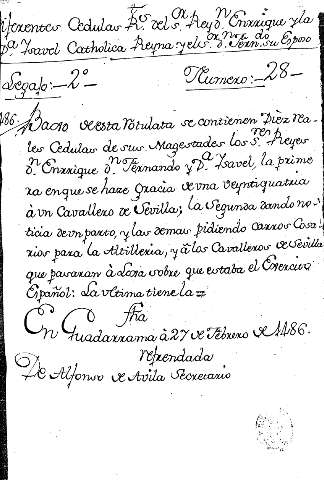 iferentes Cedulas Rs. del Sor. Rey Dn. Enrrique y la
Da. Isavel Catholica Reyna y el Sor. Dn. Ferndo. su Esposo
Legajo: 2º Numero: 28
486. Bacxo de esta Rotulata se contienen Diez rea-
les Cedulas de sus Magestades los Sres. Reyes
Dn. Enrrique Dn. Fernando y Da. Isavel, la prime
ra en que se haze Gracia de una Veyntiquatria
à un Cavallero de Sevilla; la Segunda dando no-
ticia de un parto, y las demas pidiendo carros Cosa
rios para la Altilleria, y à los Cavalleros de Sevilla
que pasaran à Lora sobre que estaba el Exercito
Español: La ultima tiene la =
fha
En Guadarrama à 27 de Febrero de 1486.
Refrendada
De Alfonso de Avila Secretario